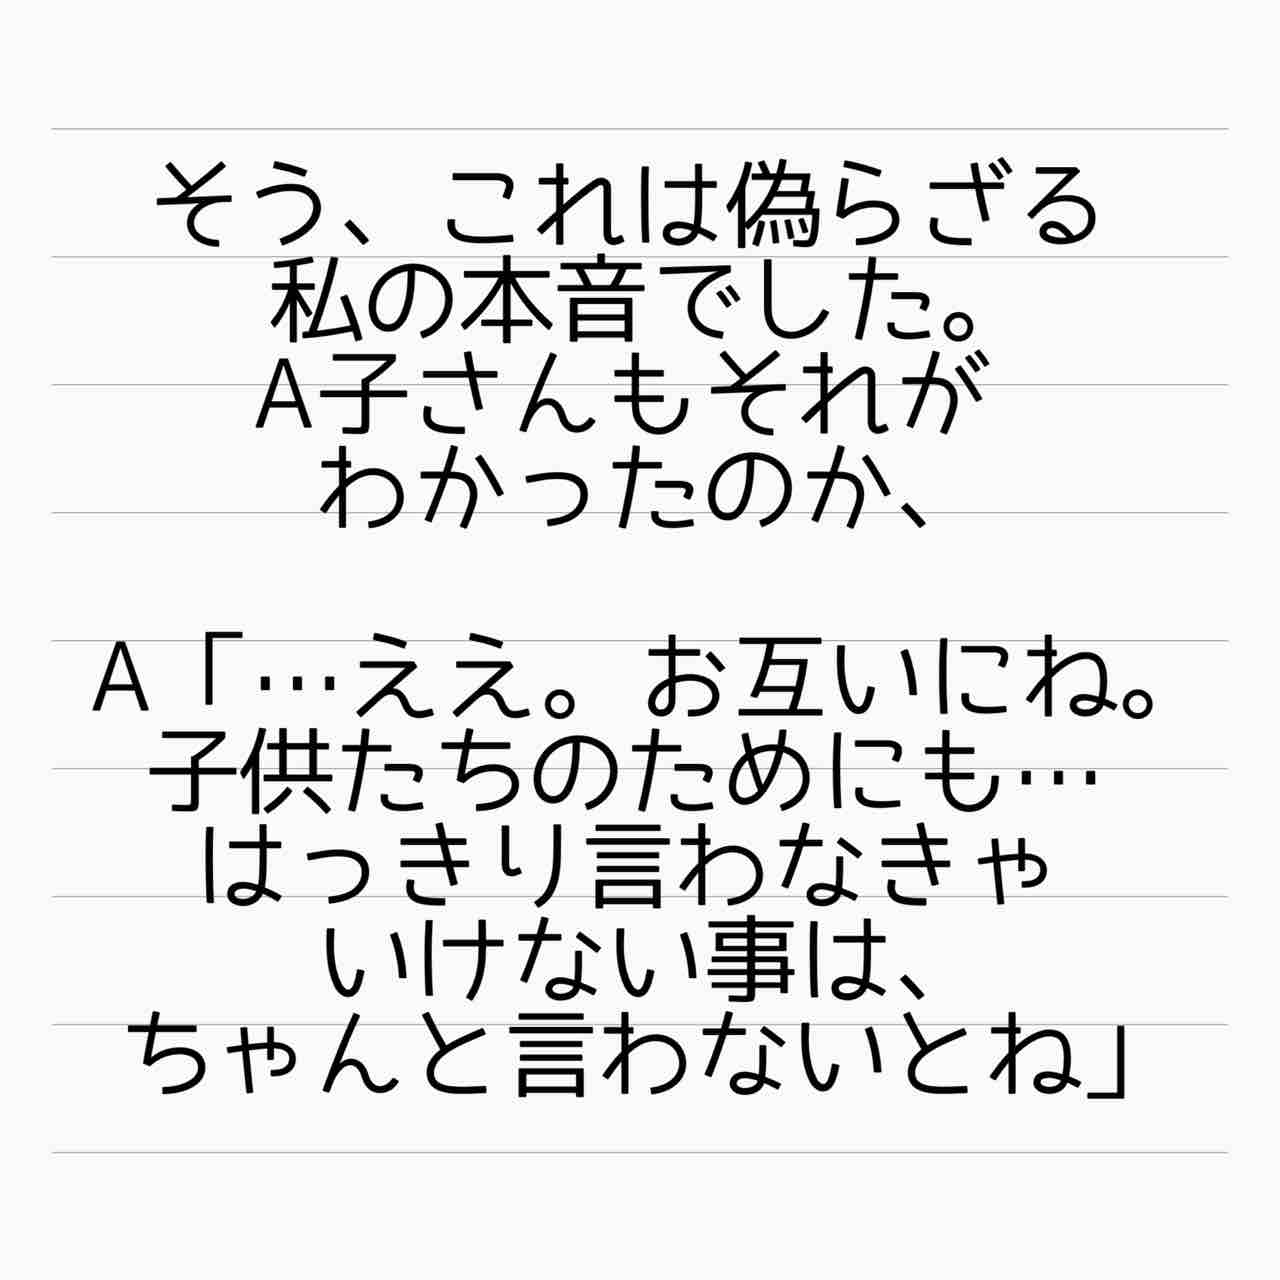 そう、これは偽らざる
私の本音でした。
A子さんもそれが
わかったのか、
A「…ええ。お互いにね。
子供たちのためにも…
はっきり言わなきゃ
いけない事は、
ちゃんと言わないとね」